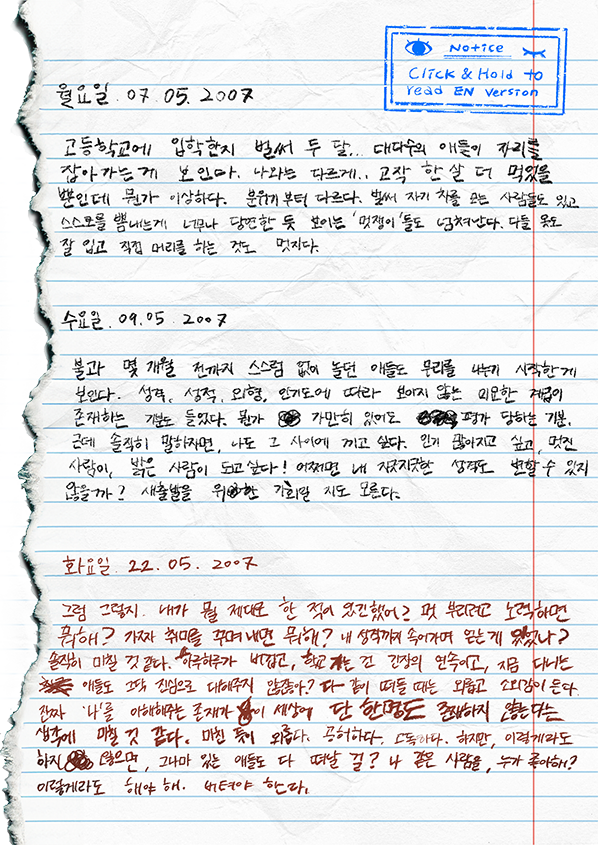 Notice
Click & Hold to
read EN version
월요일. 07. 05. 2007
고등학교에 입학한지 벌써 두 달... 대다수의 애들이 자리를
잡아가는게 보인다. 나와는 다르게.. 고작 한 살 더 먹었을
뿐인데 뭔가 이상하다. 분위기부터 다르다. 벌써 자기 차를 모는 사람들도 있고
스스로를 뽐내는게 너무나 당연한 듯 보이는 '멋쟁이'들도 넘쳐난다. 다들 옷도
잘 입고 직접 머리를 하는 것도 멋지다.
수요일. 09. 05. 2007
불과 몇 개월 전까지 스스럼 없이 놀던 애들도 무리를 나누기 시작한게
보인다. 성격, 성적, 외형, 인기도에 따라 보이지 않는 미묘한 계급이
존재하는 기분도 들었다. 뭔가 가만히 있어도 평가 당하는 기분.
근데 솔직히 말하자면, 나도 그 사이에 끼고 싶다. 인기 많아지고 싶고, 멋진
사람이, 밝은 사람이 되고 싶다! 어쩌면 내 지긋지긋한 성격도 변할 수 있지
않을까? 새출발을 위한 기회일 지도 모른다.
화요일. 22. 05. 2007
그럼 그렇지. 내가 뭘 제대로 한 적이 있긴 했어? 멋 부리려고 노력하면
뭐해? 가짜 취미를 꾸며내면 뭐해? 내 성격까지 속여가며 얻는게 있었나?
솔직히 미칠 것 같다. 하루하루가 버겁고, 학교는 긴 긴장의 연속이고, 지금 다니는
애들도 그닥 진심으로 대해주지 않잖아? 다 같이 떠들 때는 외롭고 소외감이 든다.
진짜 '나'를 이해해주는 존재가 이 세상에 단 한명도 존재하지 않는다는
생각에 미칠 것 같다. 미친 듯이 외롭다. 공허하다. 고독하다. 하지만, 이렇게라도
하지 않으면, 그나마 있는 애들도 다 떠날 걸? 나 같은 사람을, 누가 좋아해?
이렇게라도 해야 해. 버텨야 한다.